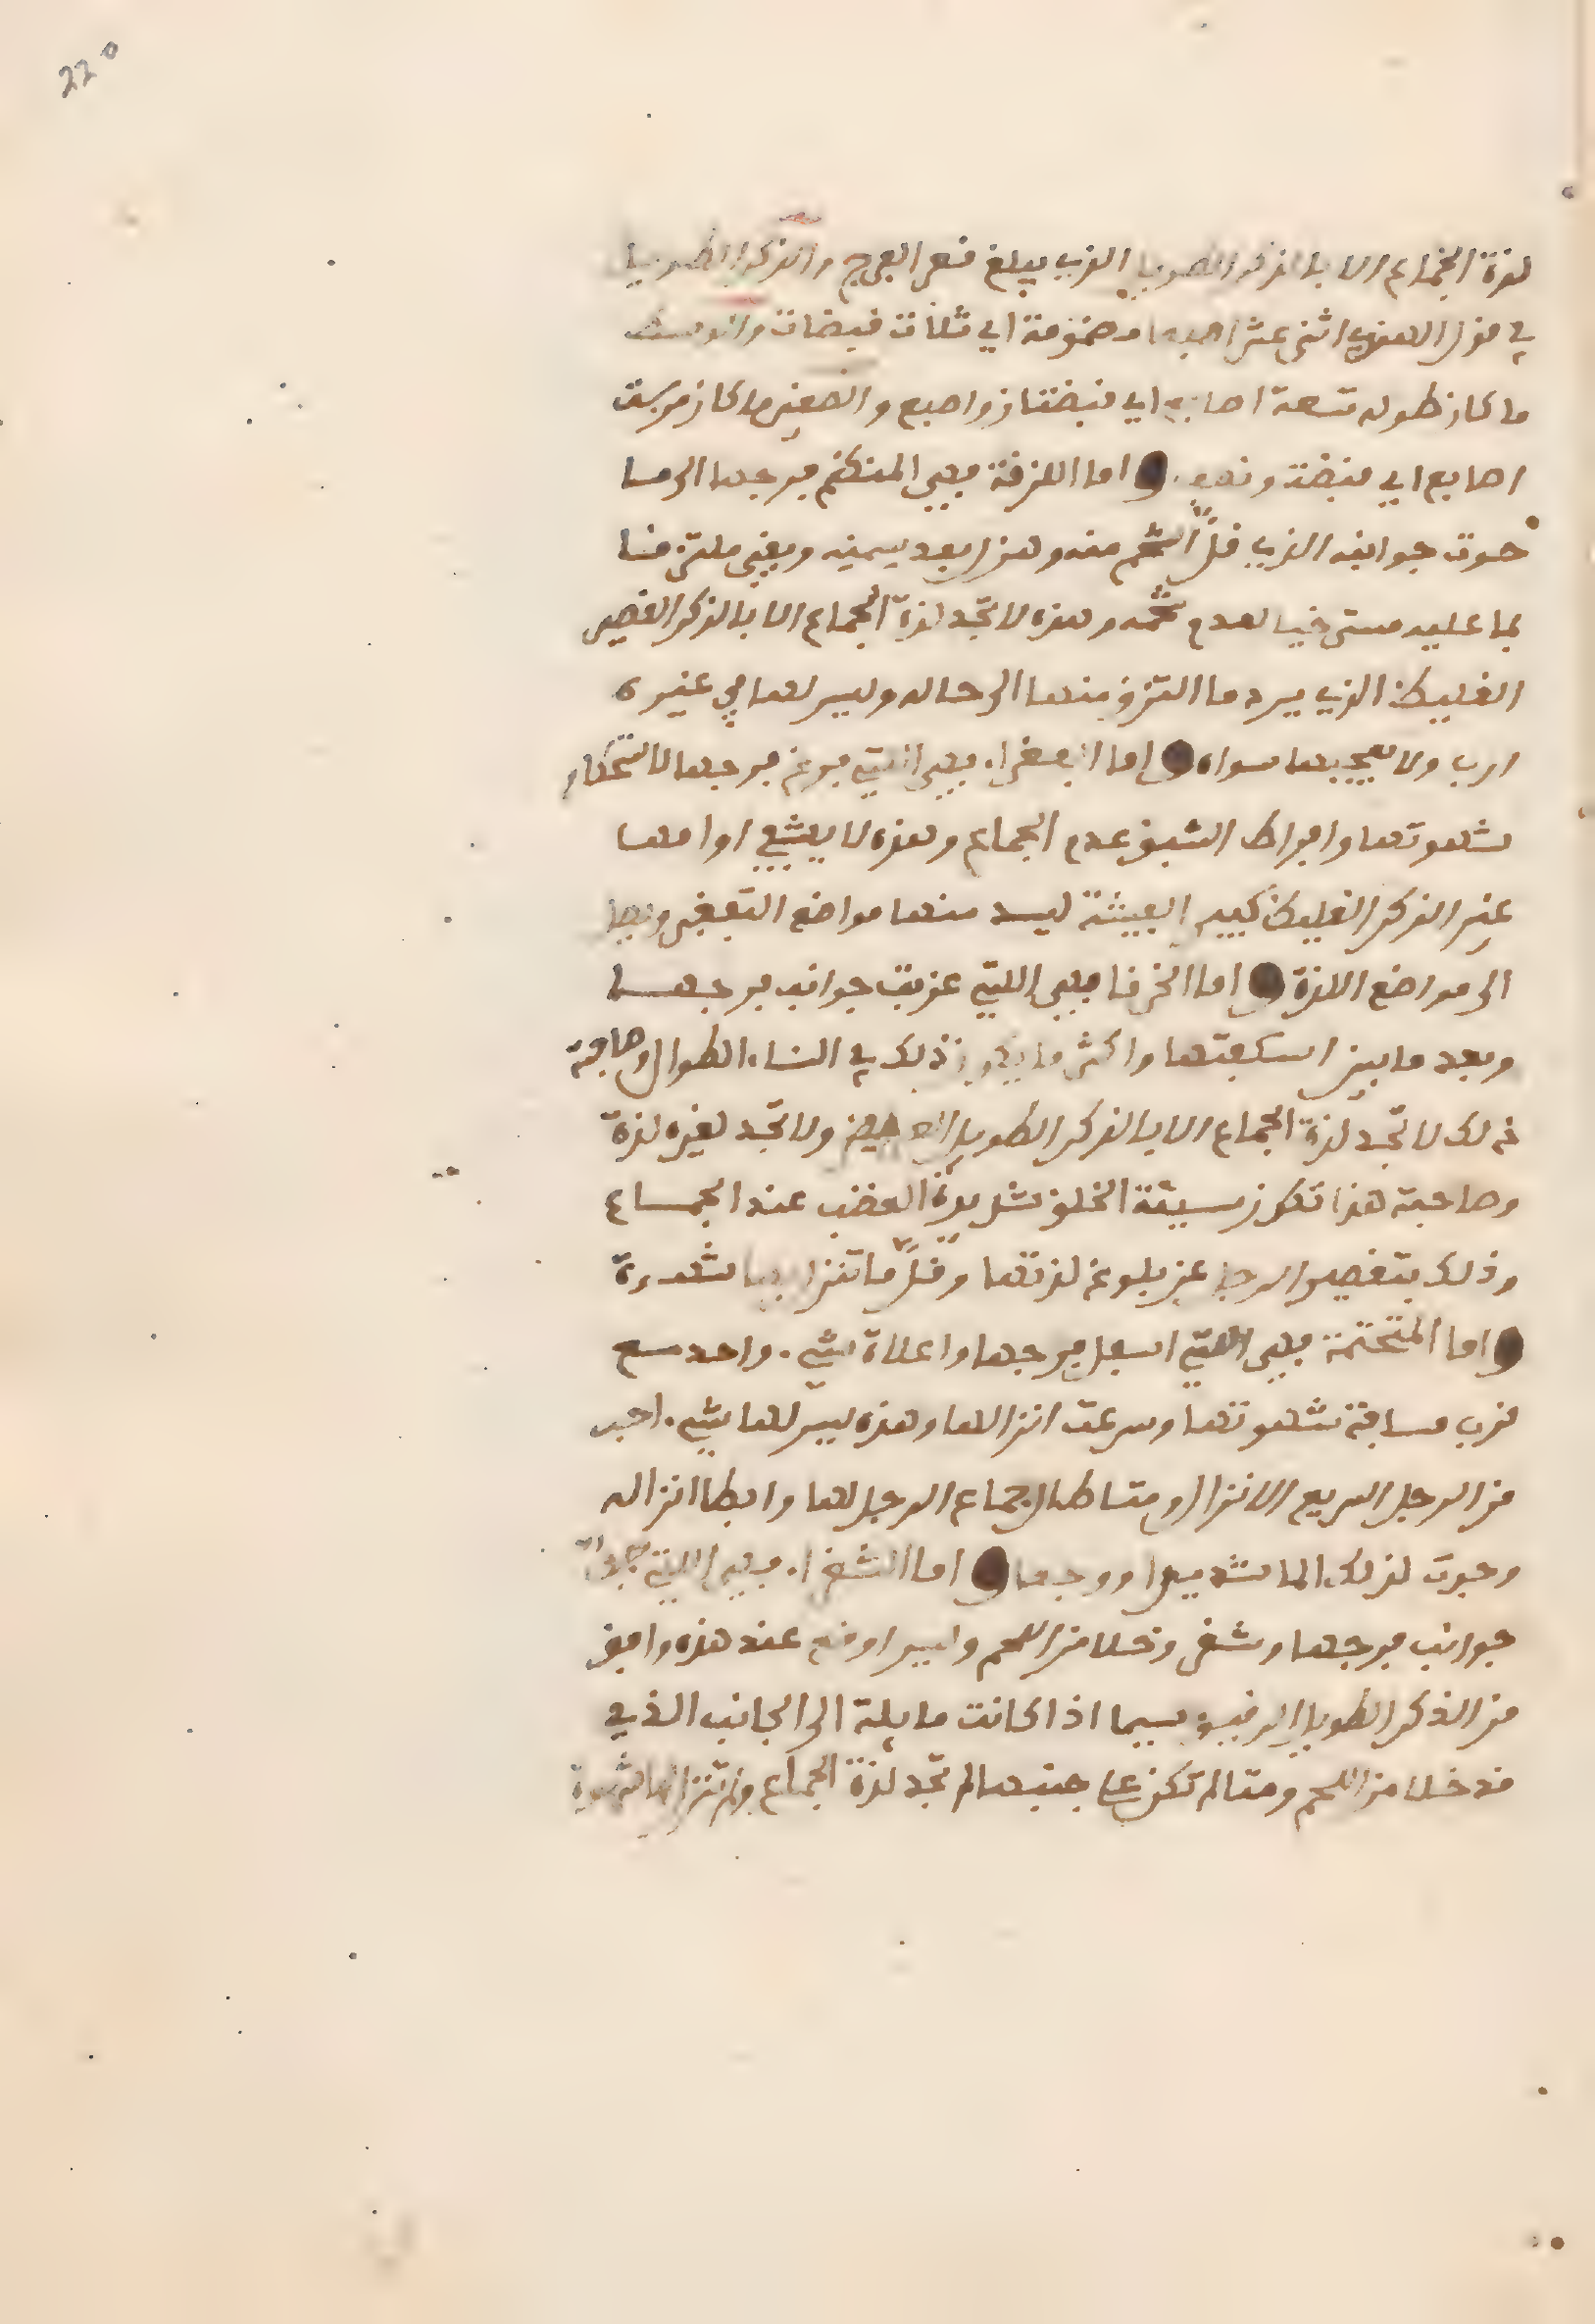 220
لذة الجماع الا بالذكر الطويل الذي يبلغ قعر الفرج والذكر الطويل
في قول الهندي اثنى عشر اصبعا مضمومة اي ثلاث قبضات والوسط
ما كان طوله تسعة اصابع اي قبضتان واصبع والصغير ما كان من ست
اصابع اي قبضة ونصف واما اللزقة فهي المنكم فرجها الى ما
حوت جوانبه الذي قل الشحم منه وهزل بعد سمنه وبقي ملتزقا
بما عليه مسترخيا لعدم شحمه وهذه لا تجد لذة الجماع الا بالذكر القصير
الغليظ الذي يرد ما التزق منها الى حاله وليس لها في غيره
ارب ولا يعجبها سواه واما القعرا فهي التي فرغ فرجها لاستحكام
شهوتها وافراط الشبق عدم الجماع وهذه لا يشفي اوامها
غير الذكر الغليظ كبير الفيشة ليسد منها مواضع التقعير
الى مواضع اللذة واما الخرقا فهي التي عزبت جوانب فرجها
وبعد ما بين اسكفتها واكثر ما يكون ذلك في النساء الطوال وصاحبة
ذلك لا تجد لذة الجماع الا بالذكر الطويل العريض ولا تجد لغيره لذة
وصاحبة هذا تكون سيئة الخلق شديدة الغضب عند الجماع
وذلك بتقصير الرجل عن بلوغ لذتها وقل ما تنزل بها شهوة
واما المتختمة فهي التي اسفل فرجها واعلاه شيء واحد مع
قرب مسافة شهوتها وسرعت انزالها وهذه ليس لها شيء احب
من الرجل السريع الانزال ومتا طال جماع الرجل لها وابطا انزاله
وجدت لذلك الما شديدا ووجعا واما الشفرا فهي التي
جوانب فرجها وشفر وخلا من اللحم وليس اوفع عند هذه وافق
من الذكر الطويل الرقيق سيما اذا كانت مايلة الى الجانب الذي
قد خلا من اللحم ومتا لم تكن على جنبها لم تجد لذة الجماع ولم تنزل لها شهوة